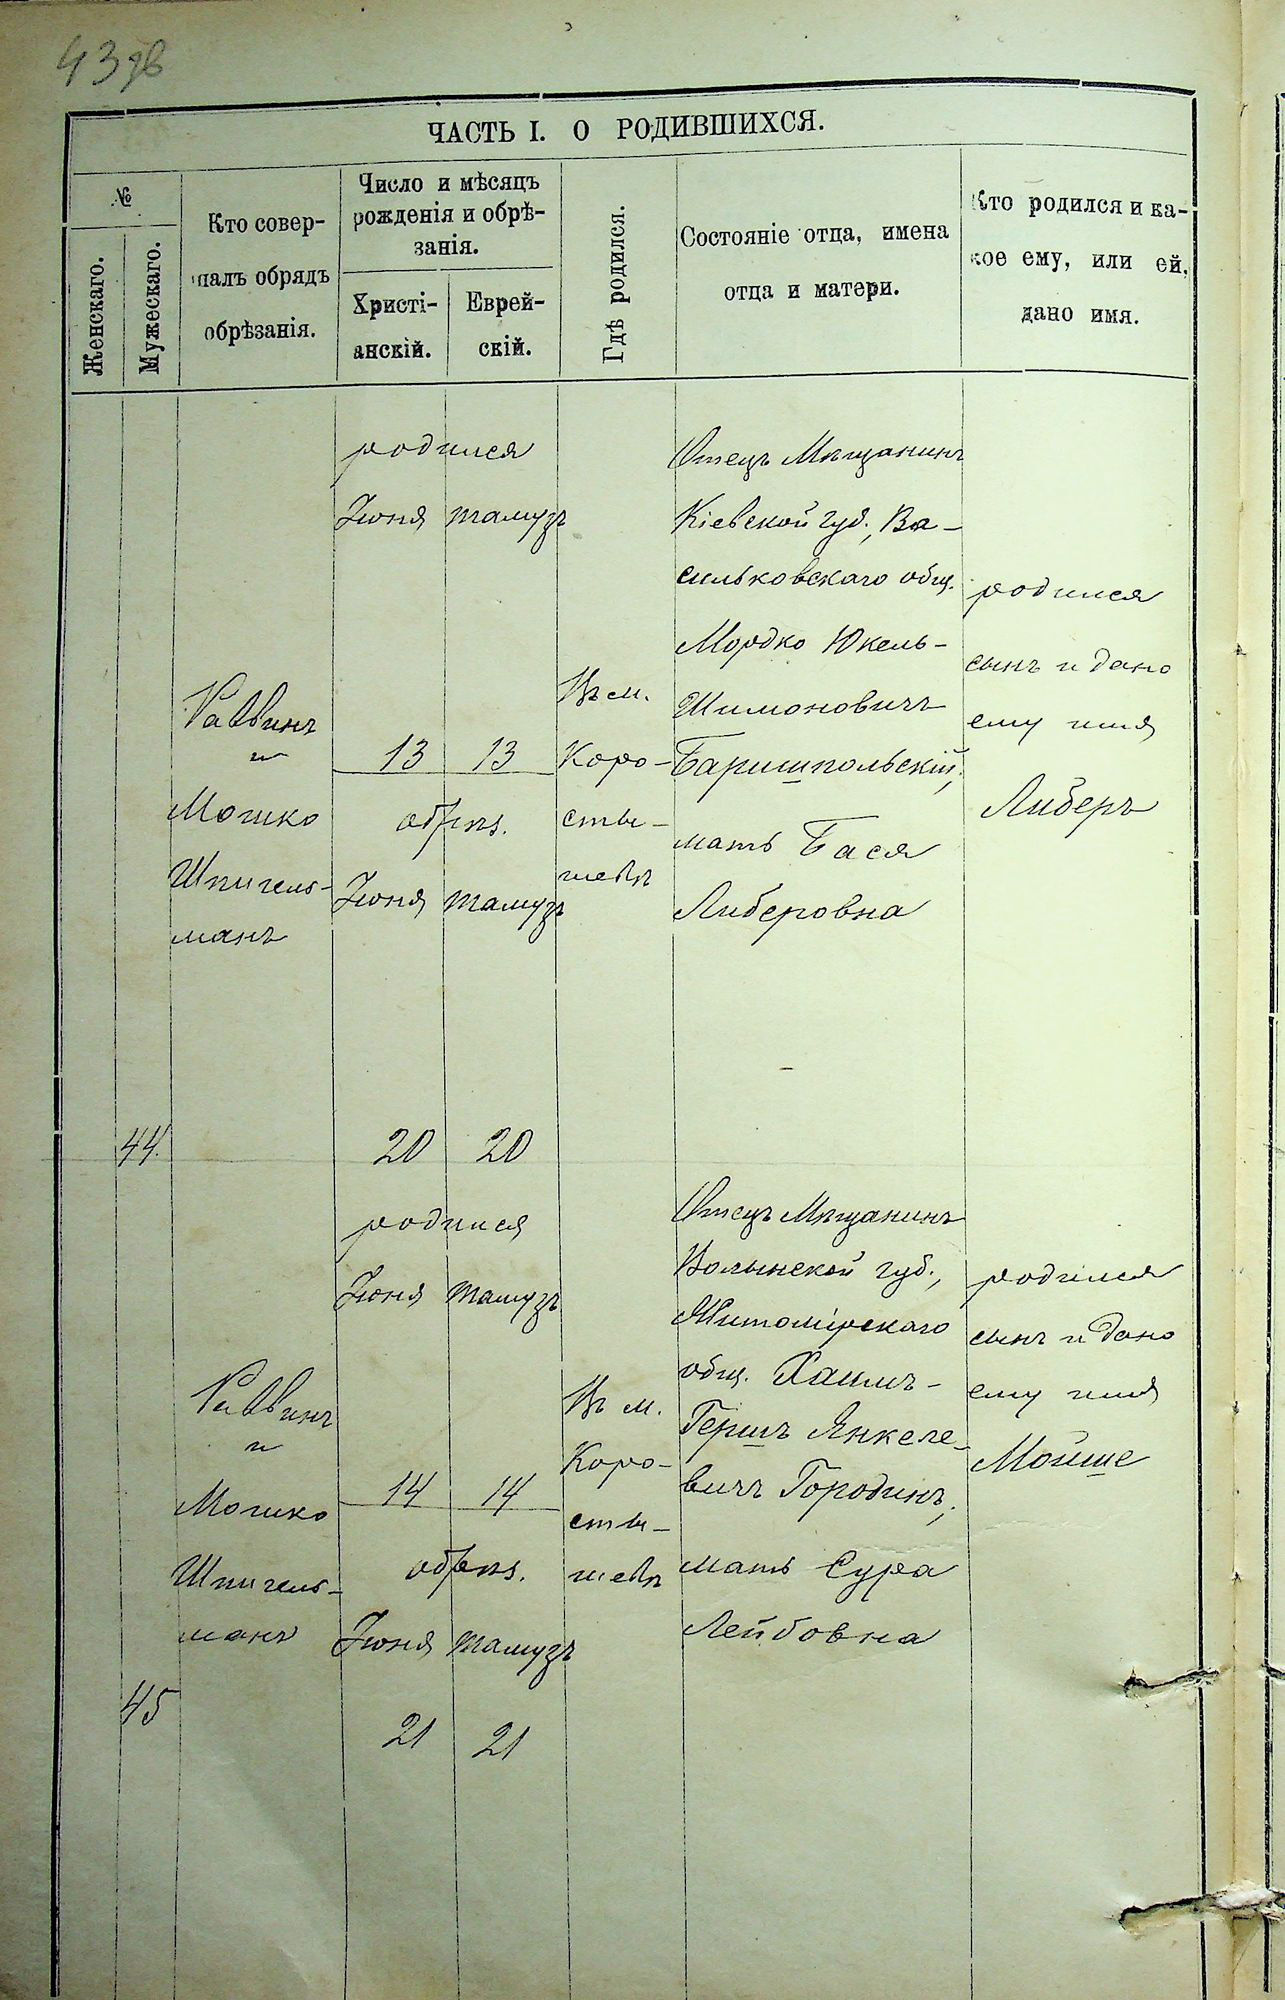 43 зв
ЧАСТЬ I. О РОДИВШИХСЯ.
№
Женскаго.
Мужескаго.
Кто совер-
шалъ обрядъ
обрѣзанія.
Число и мѣсяцъ
рожденія и обрѣ-
занія.
Христі-
анскій.
Еврей-
скій.
Гдѣ родился.
Состояніе отца, имена
отца и матери.
Кто родился и ка-
кое ему, или ей,
дано имя.
44.
Раввинъ
и
Мошко
Шпигель-
манъ
родился
Іюня Тамузъ
13 13
обрѣз.
Іюня Тамузъ
20 20
Въ м.
Коро-
сты-
шевѣ
Отецъ Мѣщанинъ
Кіевской губ., Ва-
сильковскаго общ.
Мордко Юкель-
Шимоновичъ
Баришпольскій,
мать Бася
Либеровна
родился
сынъ и дано
ему имя
Либеръ
45
Раввинъ
и
Мошко
Шпигель-
манъ
родился
Іюня Тамузъ
14 14
обрѣз.
Іюня Тамузъ
21 21
Въ м.
Коро-
сты-
шевѣ
Отецъ Мѣщанинъ
Волынской губ.,
Житомірскаго
общ. Хаимъ-
Гершъ Янкеле-
вичъ Городинъ,
мать Сура
Лейбовна
родился
сынъ и дано
ему имя
Мойше